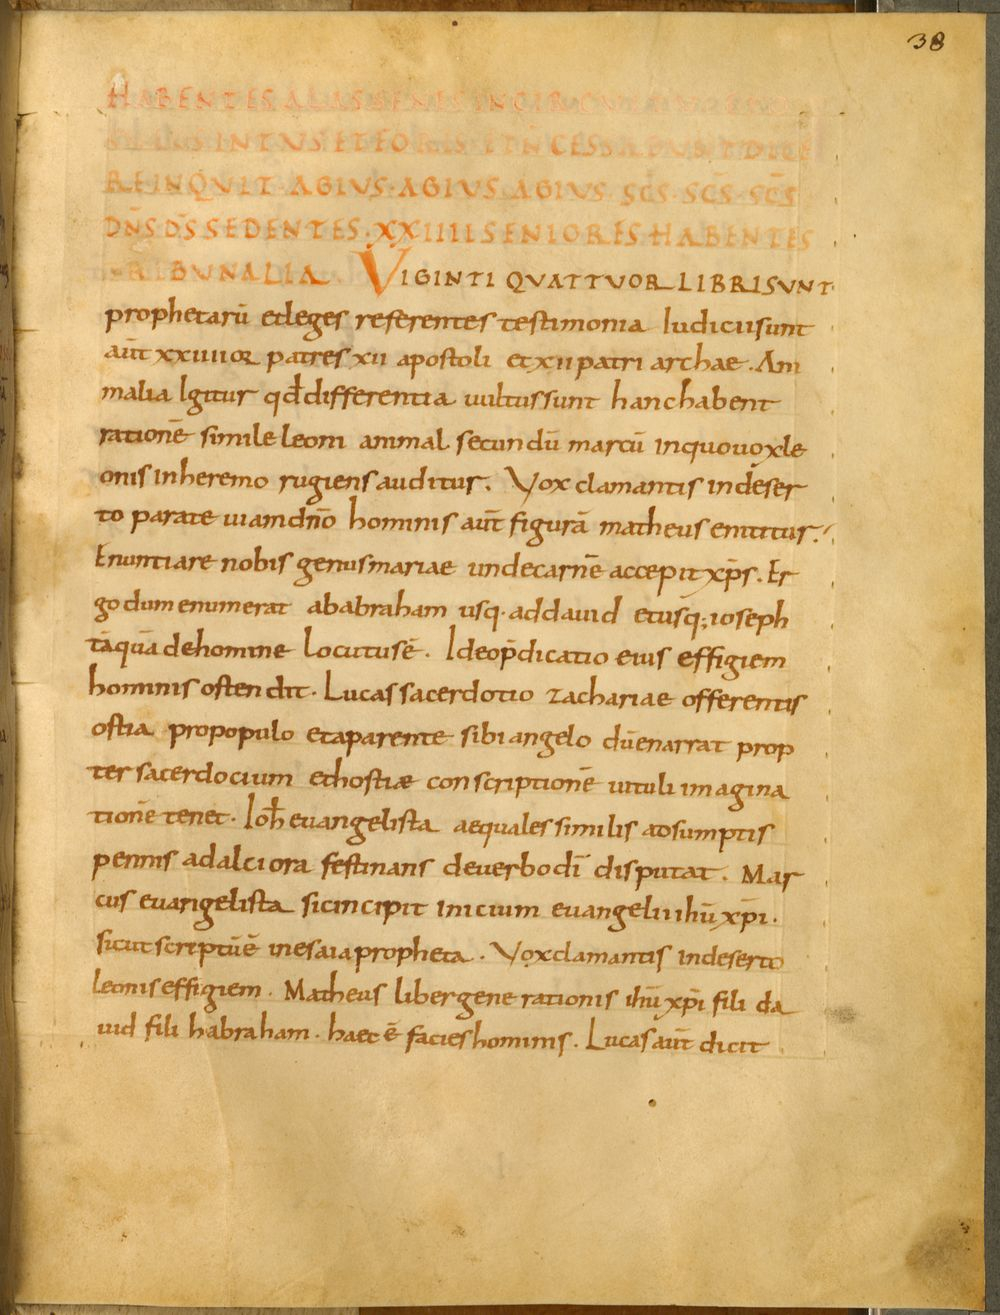 38
HABENTES ALAS SENAS IN CIRCUITU
INTUS ET FORIS ET N̄ CESSABUNT DICE
RE INQUIT AGIUS · AGIUS AGIUS SC̄S · SC̄S · SC̄S
DN̄S D̄S SEDENTES · XXIIII SENIORES HABENTES
TRIBUNALIA VIGINTI QUATTUOR LIBRI SUNT
prophetarū et leges referentes testimonia Iudicii sunt
aūt xxiiiior patres xii apostoli et xii patri archae . Ani
malia Igitur qd̄ differentia uultus sunt hanc habent
rationē simile leoni animal secundū marcū in quo uox le
onis in heremo rugiens auditur . Vox clamantis in deser
to parate uiam dn̄o hominis aūt figurā matheus enititur .
Enuntiare nobis genus mariae unde carnē accepit xp̄s . Er
go dum enumerat ab abraham usq · ad dauid et usq; ioseph
tāquā de homine Locutus ē . Ideo p̄dicatio eius effigiem
hominis ostendit . Lucas sacerdotio zachariae offerentis
ostia pro populo et aparente sibi angelo dū enarrat prop
ter sacerdocium et hostiæ conscriptionē uituli imagina
tionē tenet . Ioh̄ euangelista aequales similis adsumptis
pennis ad alciora festinans de uerbo dī disputat . Mar
cus euangelista sic incipit inicium euangelii ihū xp̄i .
sicut scriptū ē in esaia propheta . Vox clamantis in deserto
leonis effigiem . Matheus liber generationis ihū xp̄i fili da
uid fili habraham . haec ē facies hominis . Lucas aūt dicit